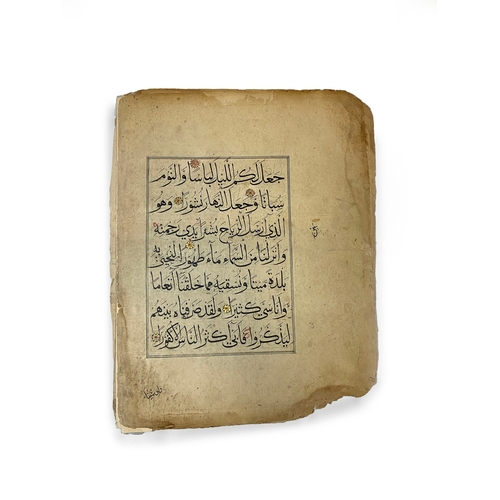 جعل لكم الليل لباسا والنوم
سباتا وجعل النهار نشورا وهو
الذي ارسل الرياح بشرا بين يدي رحمته
وانزلنا من السماء ماء طهورا لنحيي به
بلدة ميتا ونسقيه مما خلقنا أنعاما
وأناسي كثيرا ولقد صرفناه بينهم
ليذكروا فأبى أكثر الناس إلا كفورا